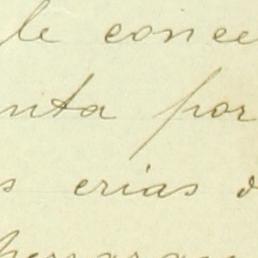 le conce
nta por
s erias d